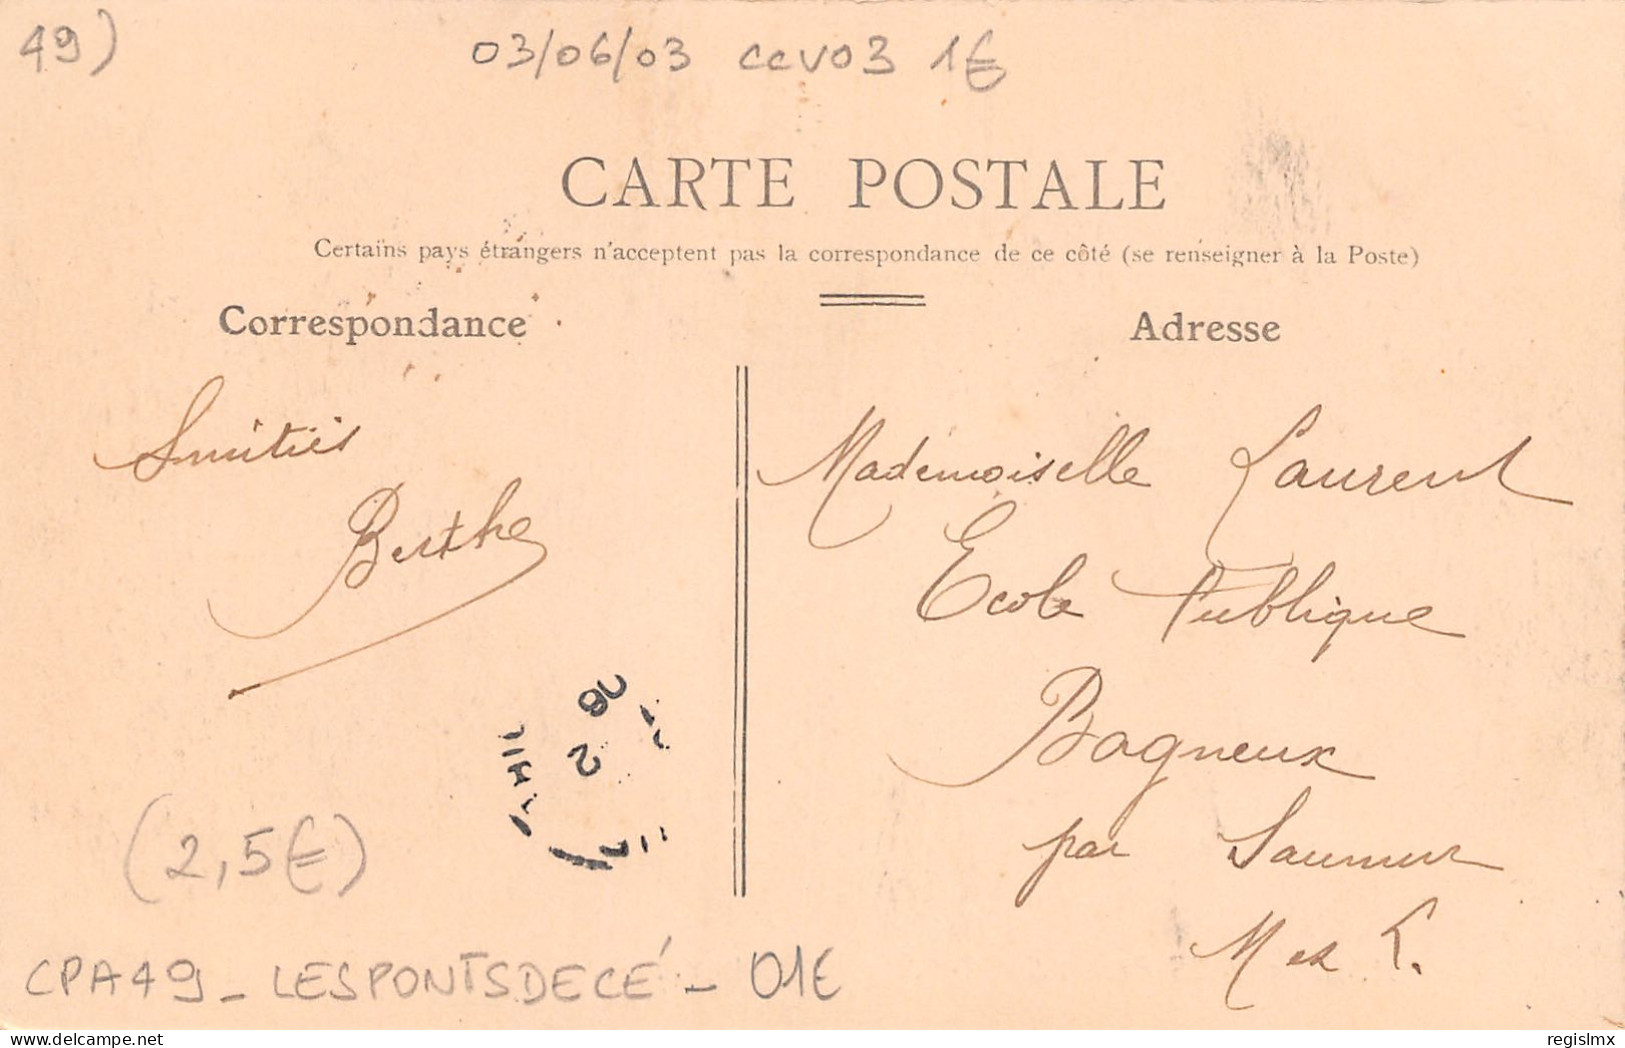 49)
03/06/03 CCV03 1€
CARTE POSTALE
Certains pays étrangers n'acceptent pas la correspondance de ce côté (se renseigner à la Poste)
Correspondance
Amitiés
Berthe
Adresse
Mademoiselle Laurent
Ecole Publique
Bagneux
par Saumur
M et L.
08
2
(2,5€)
CPA49_LESPONTSDECÉ_01€
regislmx